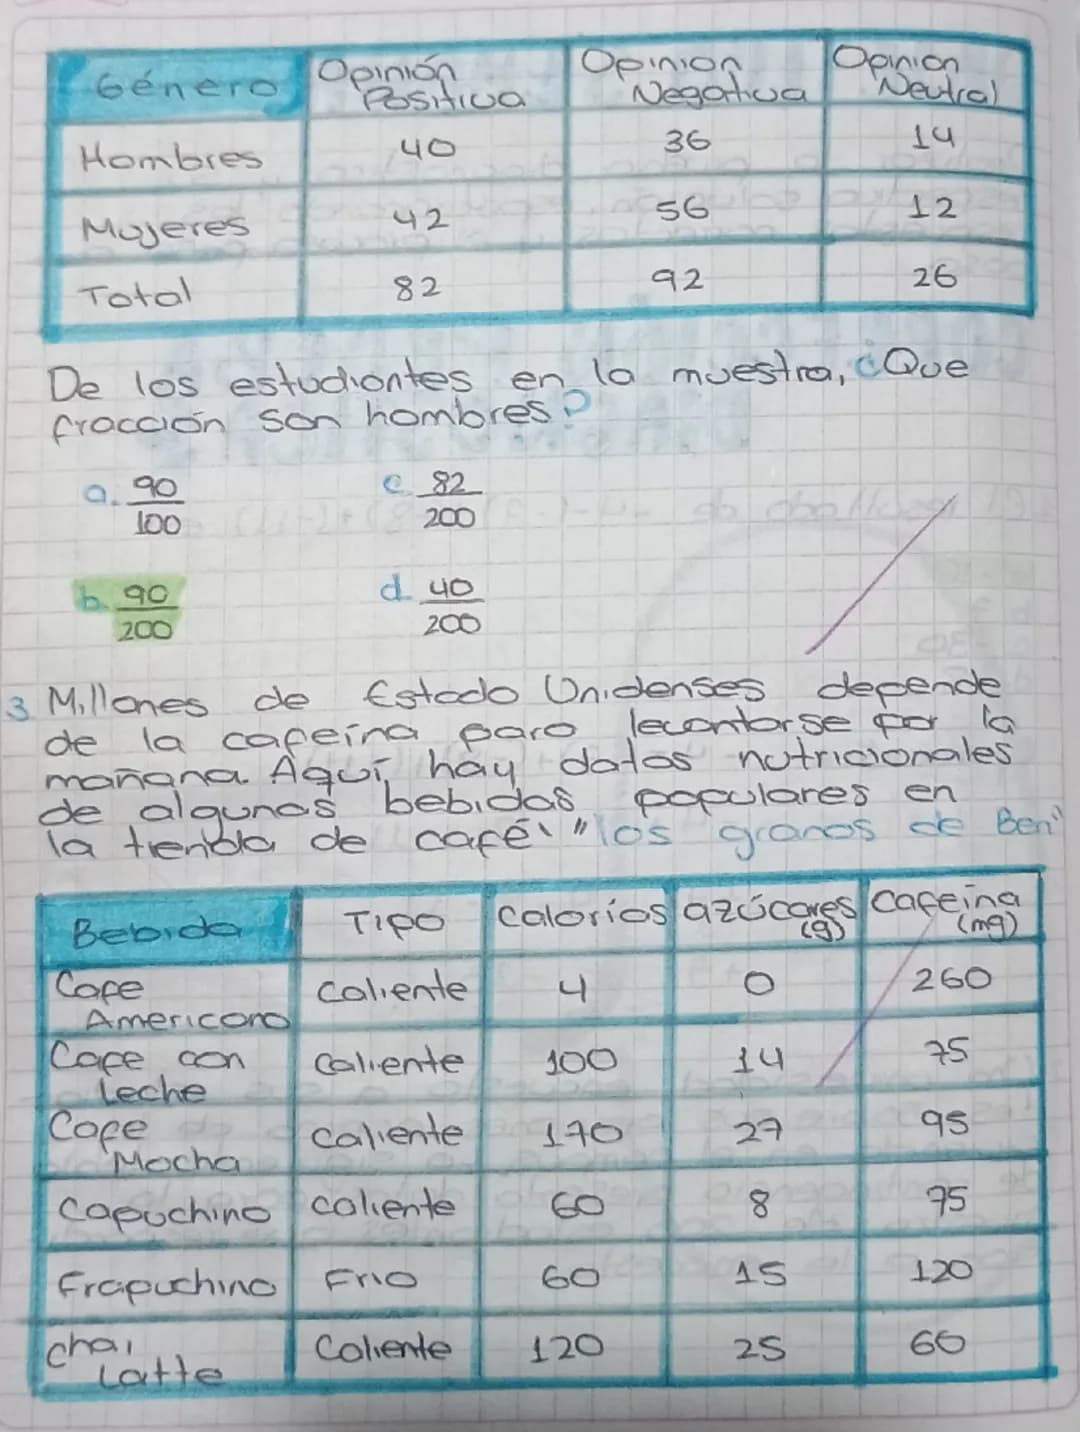 Género | Opinión Positiva | Opinion Negativa | Opinion Neutral
Hombres | 40 | 36 | 14
Mujeres | 42 | 56 | 12
Total | 82 | 92 | 26
De los estudiantes en la muestra, ¿Que
fracción son hombres?
a. 90/100 c. 82/200
b. 90/200 d. 40/200
3 Millones de Estado Unidenses depende
de la cafeína para levantarse por la
mañana. Aquí, hay datos nutricionales
de algunas bebidas populares en
la tienda de café: "los granos de Ben"
Bebida | Tipo | Calorías | azúcares (g) | Cafeína (mg)
Cafe Americano | Caliente | 4 | 0 | 260
Cafe con Leche | Caliente | 100 | 14 | 75
Cafe Mocha | Caliente | 170 | 27 | 95
Capuchino | Caliente | 60 | 8 | 75
Frapuchino | Frio | 60 | 15 | 120
chai Latte | Caliente | 120 | 25 | 60